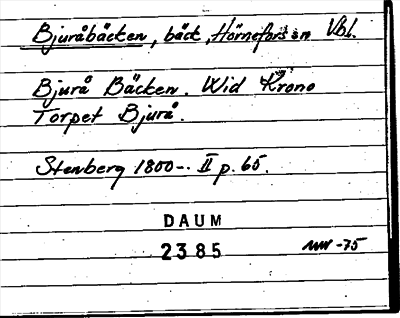 Bjuråbäcken, bäck, Hörnefors sn Vbl.
Bjurå Bäcken. Wid Krono
Torpet Bjurå.
Stenberg 1800-. II p. 65.
DAUM
2385
-75